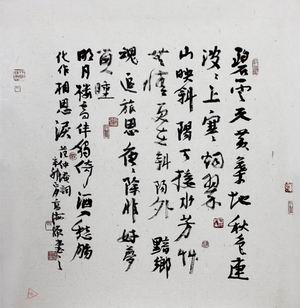 碧雲天黄葉地秋色連
波波上寒烟翠
山映斜陽天接水芳艸
無情更在斜陽外 黯鄉
魂追旅思夜夜除非好夢
留人睡
明月樓高休獨倚酒入愁腸
化作相思淚 范仲淹詞